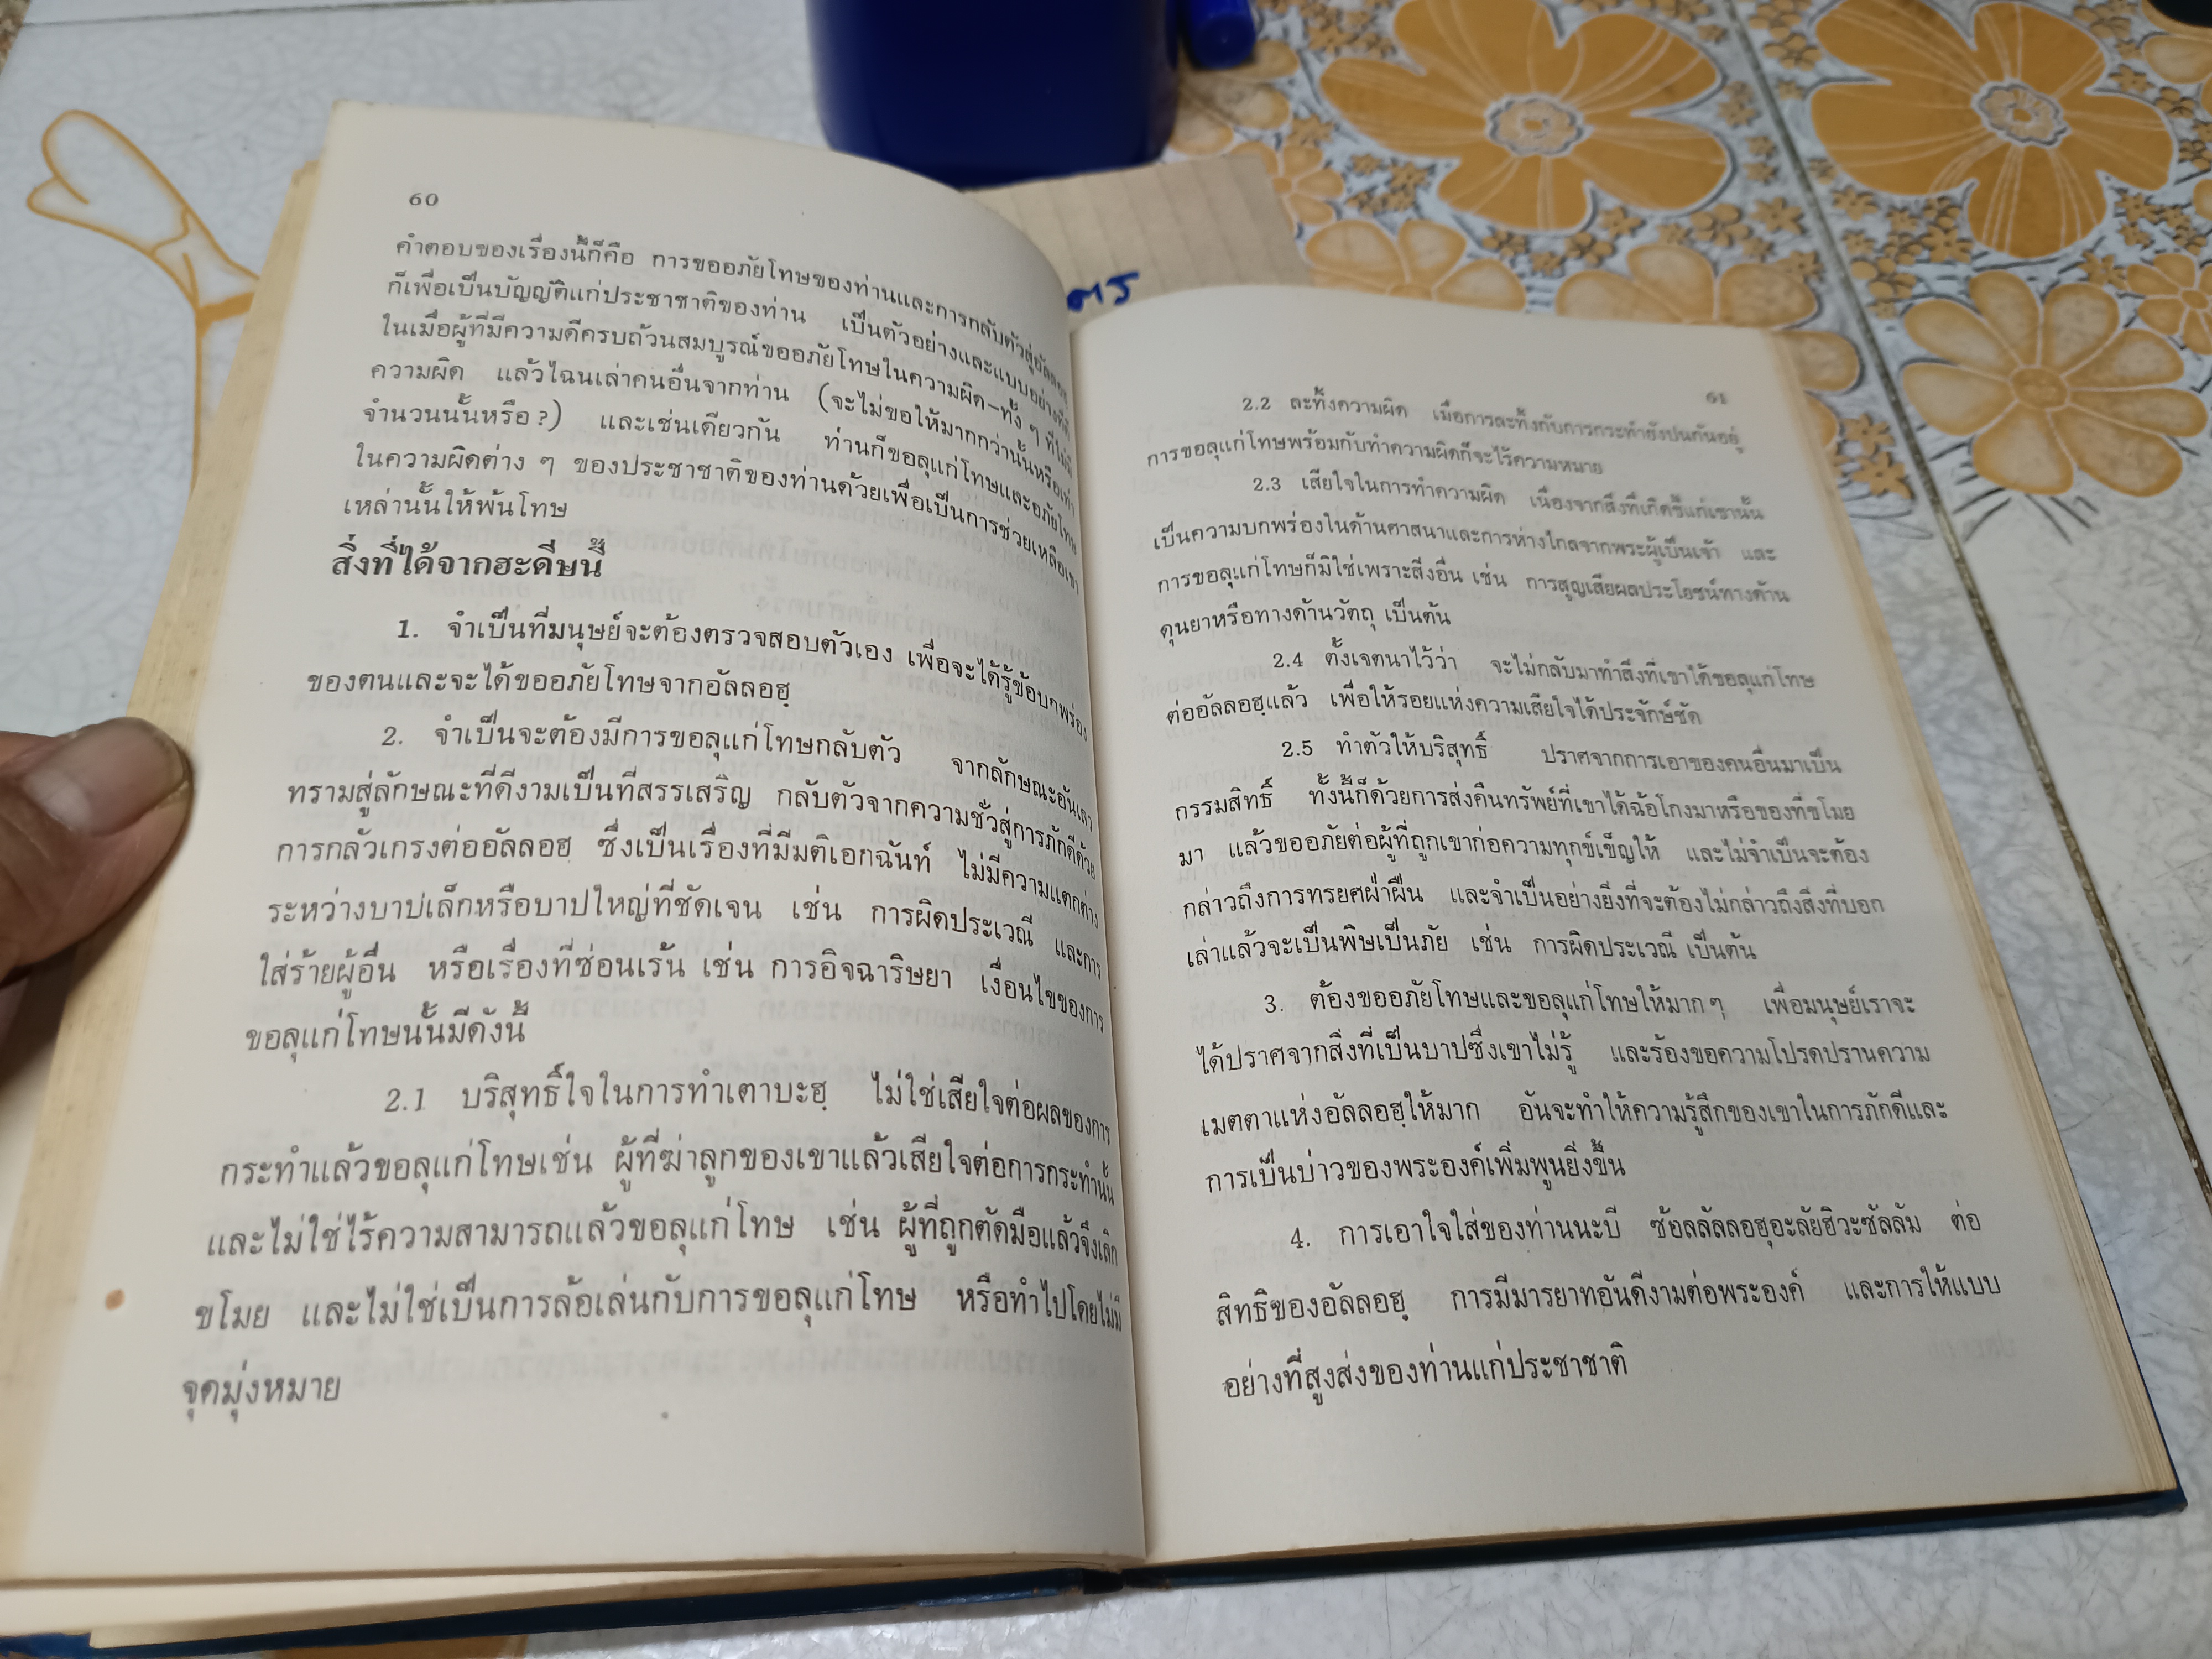 60
คำตอบของเรื่องนี้ก็คือ การขออภัยโทษของท่านและการกลับตัวสู่อัลลอฮฺ
ก็เพื่อเป็นบัญญัติแก่ประชาชาติของท่าน เป็นตัวอย่างและแบบอย่างที่ดี
ในเมื่อผู้ที่มีความดีครบถ้วนสมบูรณ์ขออภัยโทษในความผิด–ทั้ง ๆ ที่ไม่มี
ความผิด แล้วไฉนเล่าคนอื่นจากท่าน (จะไม่ขอให้มากกว่านั้นหรือเท่า
จำนวนนั้นหรือ?) และเช่นเดียวกัน ท่านก็ขอลุแก่โทษและอภัยโทษ
ในความผิดต่าง ๆ ของประชาชาติของท่านด้วยเพื่อเป็นการช่วยเหลือเขา
เหล่านั้นให้พ้นโทษ
สิ่งที่ได้จากฮะดีษนี้
1. จำเป็นที่มนุษย์จะต้องตรวจสอบตัวเอง เพื่อจะได้รู้ข้อบกพร่อง
ของตนและจะได้ขออภัยโทษจากอัลลอฮฺ
2. จำเป็นจะต้องมีการขอลุแก่โทษกลับตัว จากลักษณะอันเลว
ทรามสู่ลักษณะที่ดีงามเป็นที่สรรเสริญ กลับตัวจากความชั่วสู่การภักดีด้วย
การกลัวเกรงต่ออัลลอฮ ซึ่งเป็นเรื่องที่มีมติเอกฉันท์ ไม่มีความแตกต่าง
ระหว่างบาปเล็กหรือบาปใหญ่ที่ชัดเจน เช่น การผิดประเวณี และการ
ใส่ร้ายผู้อื่น หรือเรื่องที่ซ่อนเร้น เช่น การอิจฉาริษยา เงื่อนไขของการ
ขอลุแก่โทษนั้นมีดังนี้
2.1 บริสุทธิ์ใจในการทำเตาบะฮฺ ไม่ใช่เสียใจต่อผลของการ
กระทำแล้วขอลุแก่โทษเช่น ผู้ที่ฆ่าลูกของเขาแล้วเสียใจต่อการกระทำนั้น
และไม่ใช่ไร้ความสามารถแล้วขอลุแก่โทษ เช่น ผู้ที่ถูกตัดมือแล้วจึงเลิก
ขโมย และไม่ใช่เป็นการล้อเล่นกับการขอลุแก่โทษ หรือทำไปโดยไม่มี
จุดมุ่งหมาย
ตร
61
2.2 ละทิ้งความผิด เมื่อการละทิ้งกับการกระทำยังปนกันอยู่
การขอลุแก่โทษพร้อมกับทำความผิดก็จะไร้ความหมาย
2.3 เสียใจในการทำความผิด เนื่องจากสิ่งที่เกิดขึ้นแก่เขานั้น
เป็นความบกพร่องในด้านศาสนาและการห่างไกลจากพระผู้เป็นเจ้า และ
การขอลุแก่โทษก็มิใช่เพราะสิ่งอื่น เช่น การสูญเสียผลประโยชน์ทางด้าน
ดุนยาหรือทางด้านวัตถุ เป็นต้น
2.4 ตั้งเจตนาไว้ว่า จะไม่กลับมาทำสิ่งที่เขาได้ขอลุแก่โทษ
ต่ออัลลอฮฺแล้ว เพื่อให้รอยแห่งความเสียใจได้ประจักษ์ชัด
2.5 ทำตัวให้บริสุทธิ์ ปราศจากการเอาของคนอื่นมาเป็น
กรรมสิทธิ์ ทั้งนี้ก็ด้วยการส่งคืนทรัพย์ที่เขาได้ฉ้อโกงมาหรือของที่ขโมย
มา แล้วขออภัยต่อผู้ที่ถูกเขาก่อความทุกข์เข็ญให้ และไม่จำเป็นจะต้อง
กล่าวถึงการทรยศฝ่าฝืน และจำเป็นอย่างยิ่งที่จะต้องไม่กล่าวถึงสิ่งที่บอก
เล่าแล้วจะเป็นพิษเป็นภัย เช่น การผิดประเวณี เป็นต้น
3. ต้องขออภัยโทษและขอลุแก่โทษให้มาก ๆ เพื่อมนุษย์เราจะ
ได้ปราศจากสิ่งที่เป็นบาปซึ่งเขาไม่รู้ และร้องขอความโปรดปรานความ
เมตตาแห่งอัลลอฮฺให้มาก อันจะทำให้ความรู้สึกของเขาในการภักดีและ
การเป็นบ่าวของพระองค์เพิ่มพูนยิ่งขึ้น
4. การเอาใจใส่ของท่านนะบี ซ้อลลัลลอฮุอะลัยฮิวะซัลลัม ต่อ
สิทธิของอัลลอฮฺ การมีมารยาทอันดีงามต่อพระองค์ และการให้แบบ
อย่างที่สูงส่งของท่านแก่ประชาชาติ